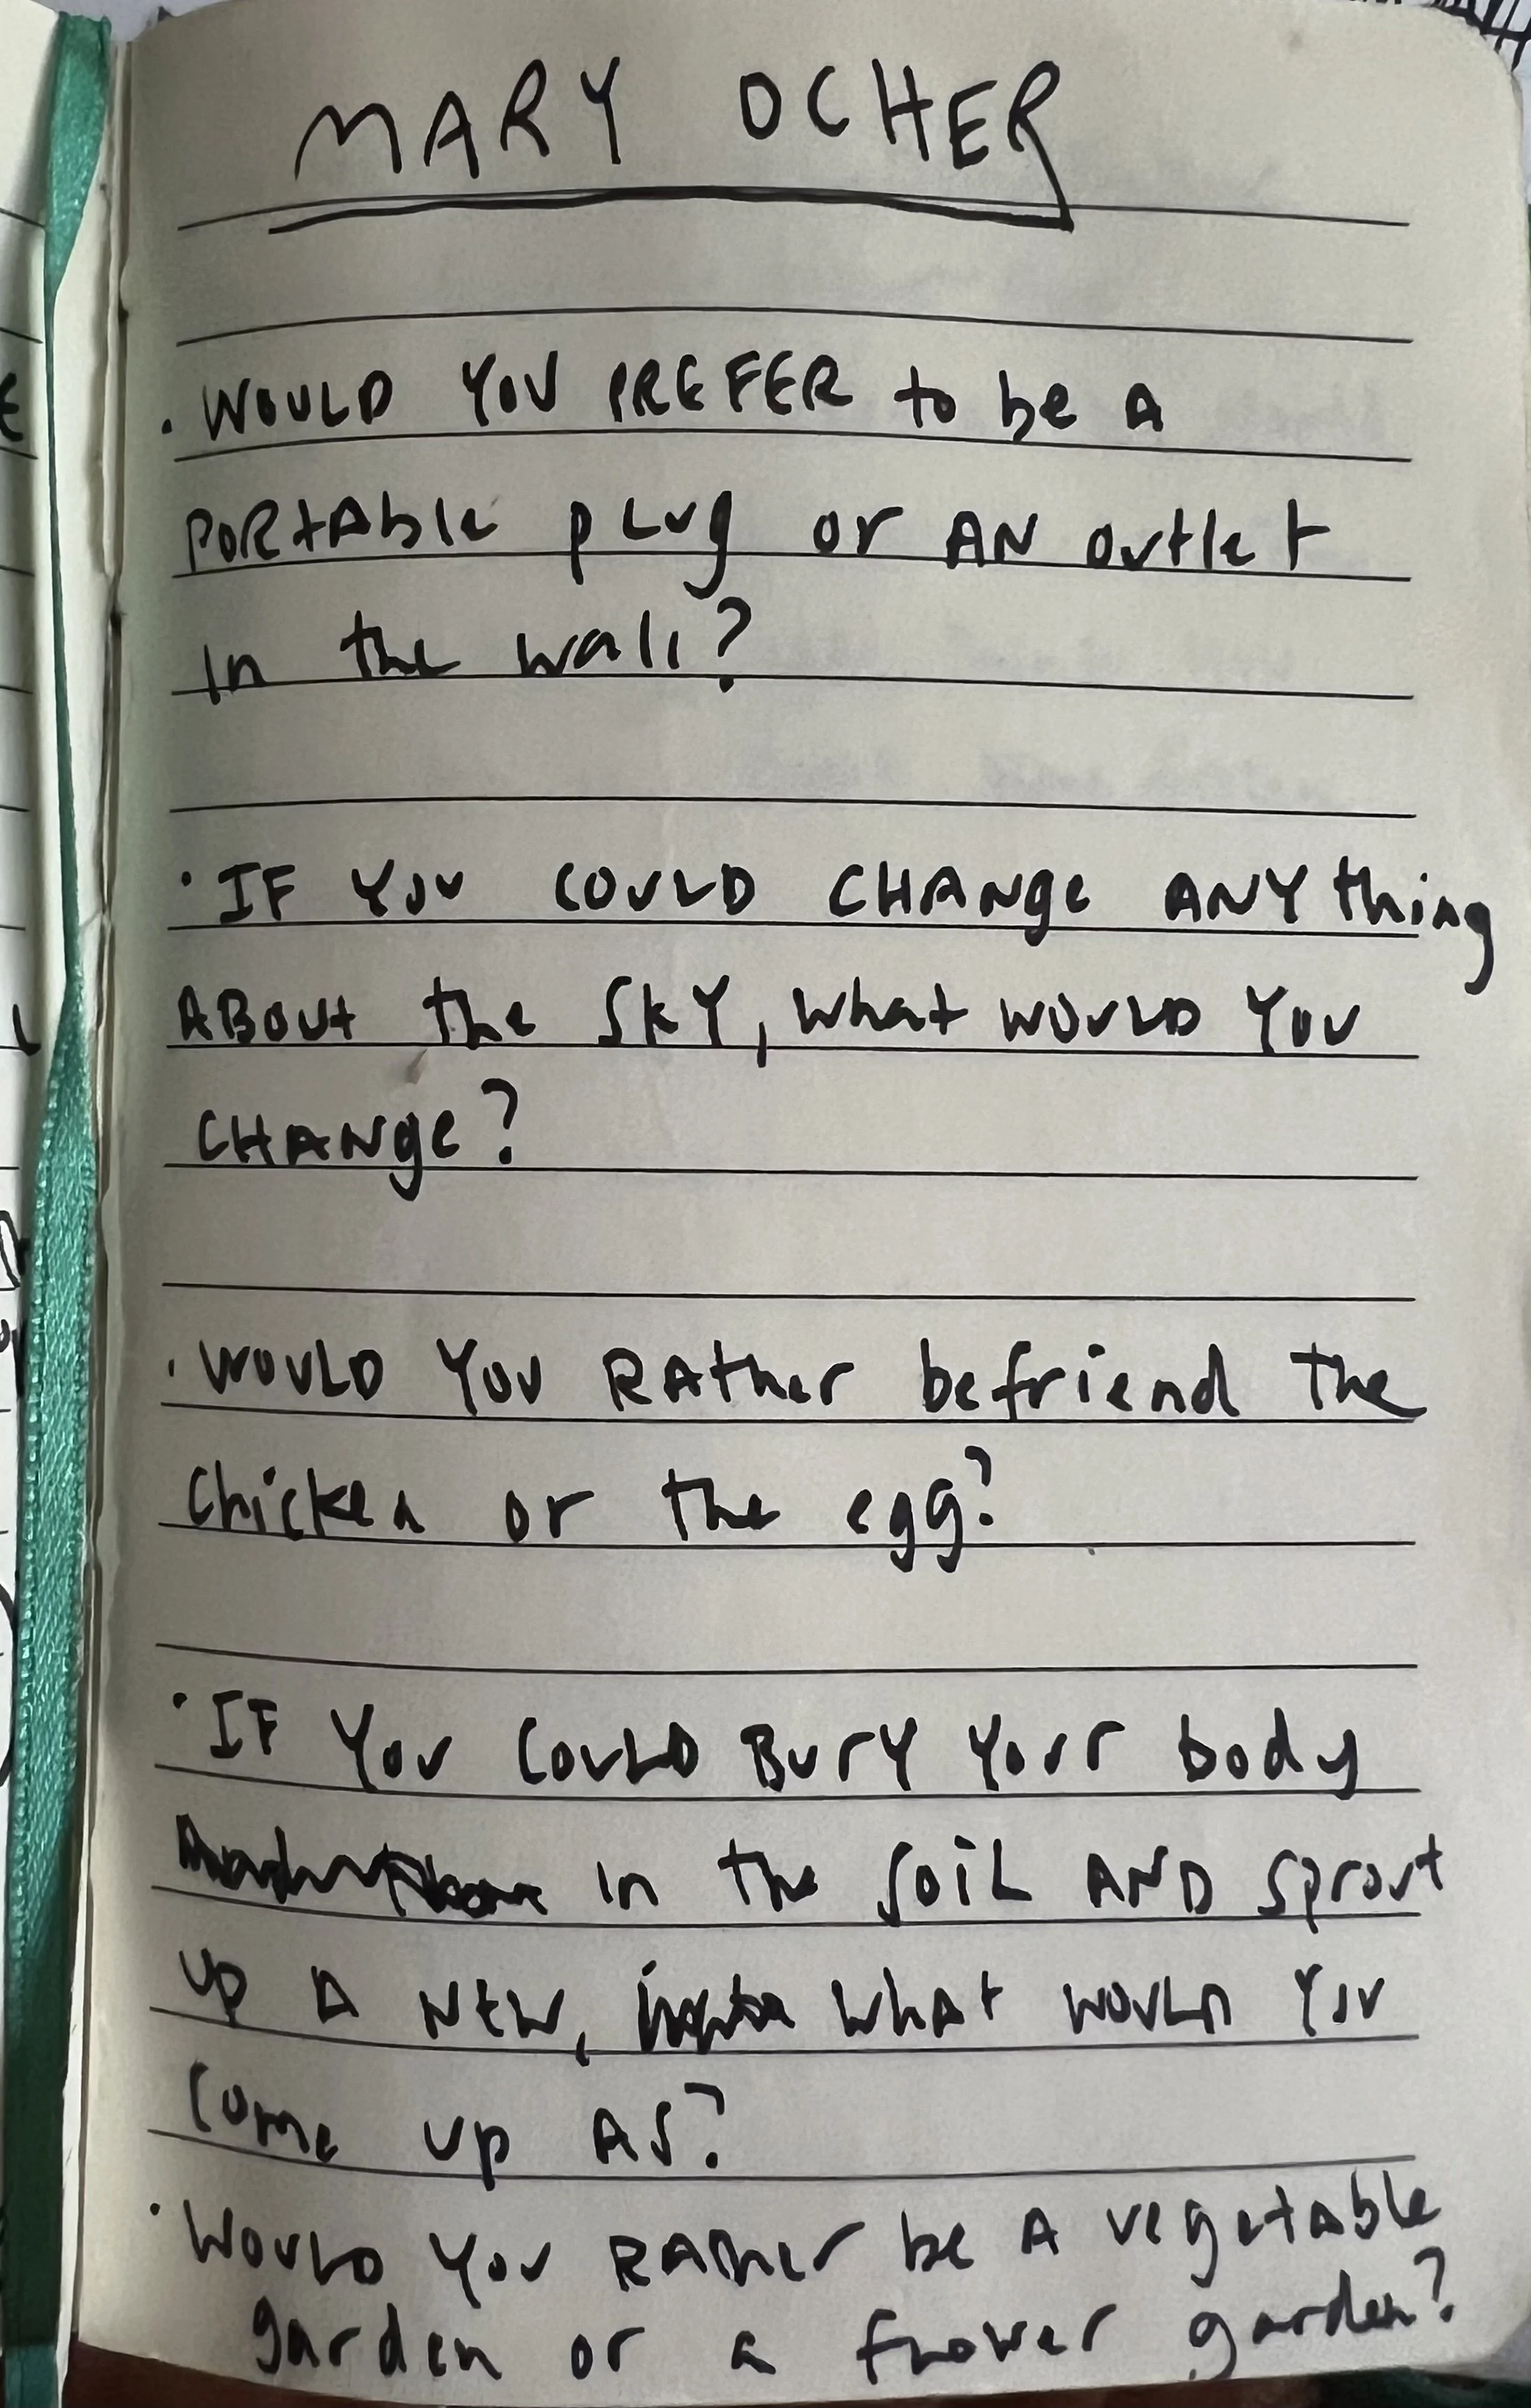 MARY OCHER
. WOULD YOU PREFER to be A
PORtAble plug or AN outlet
in the wall?
· IF YOU COULD CHANge ANYthing
ABout the SKY, what WOULD YOU
CHANge?
. WOULD YOU RAther befriend the
Chicken or the egg?
· IF YOU COULD BurY Your body
in the SOIL AND sprout
up A NEW, what would you
come up AS?
· WOULD YOU RAther be A vegetable
garden or a flower garden?